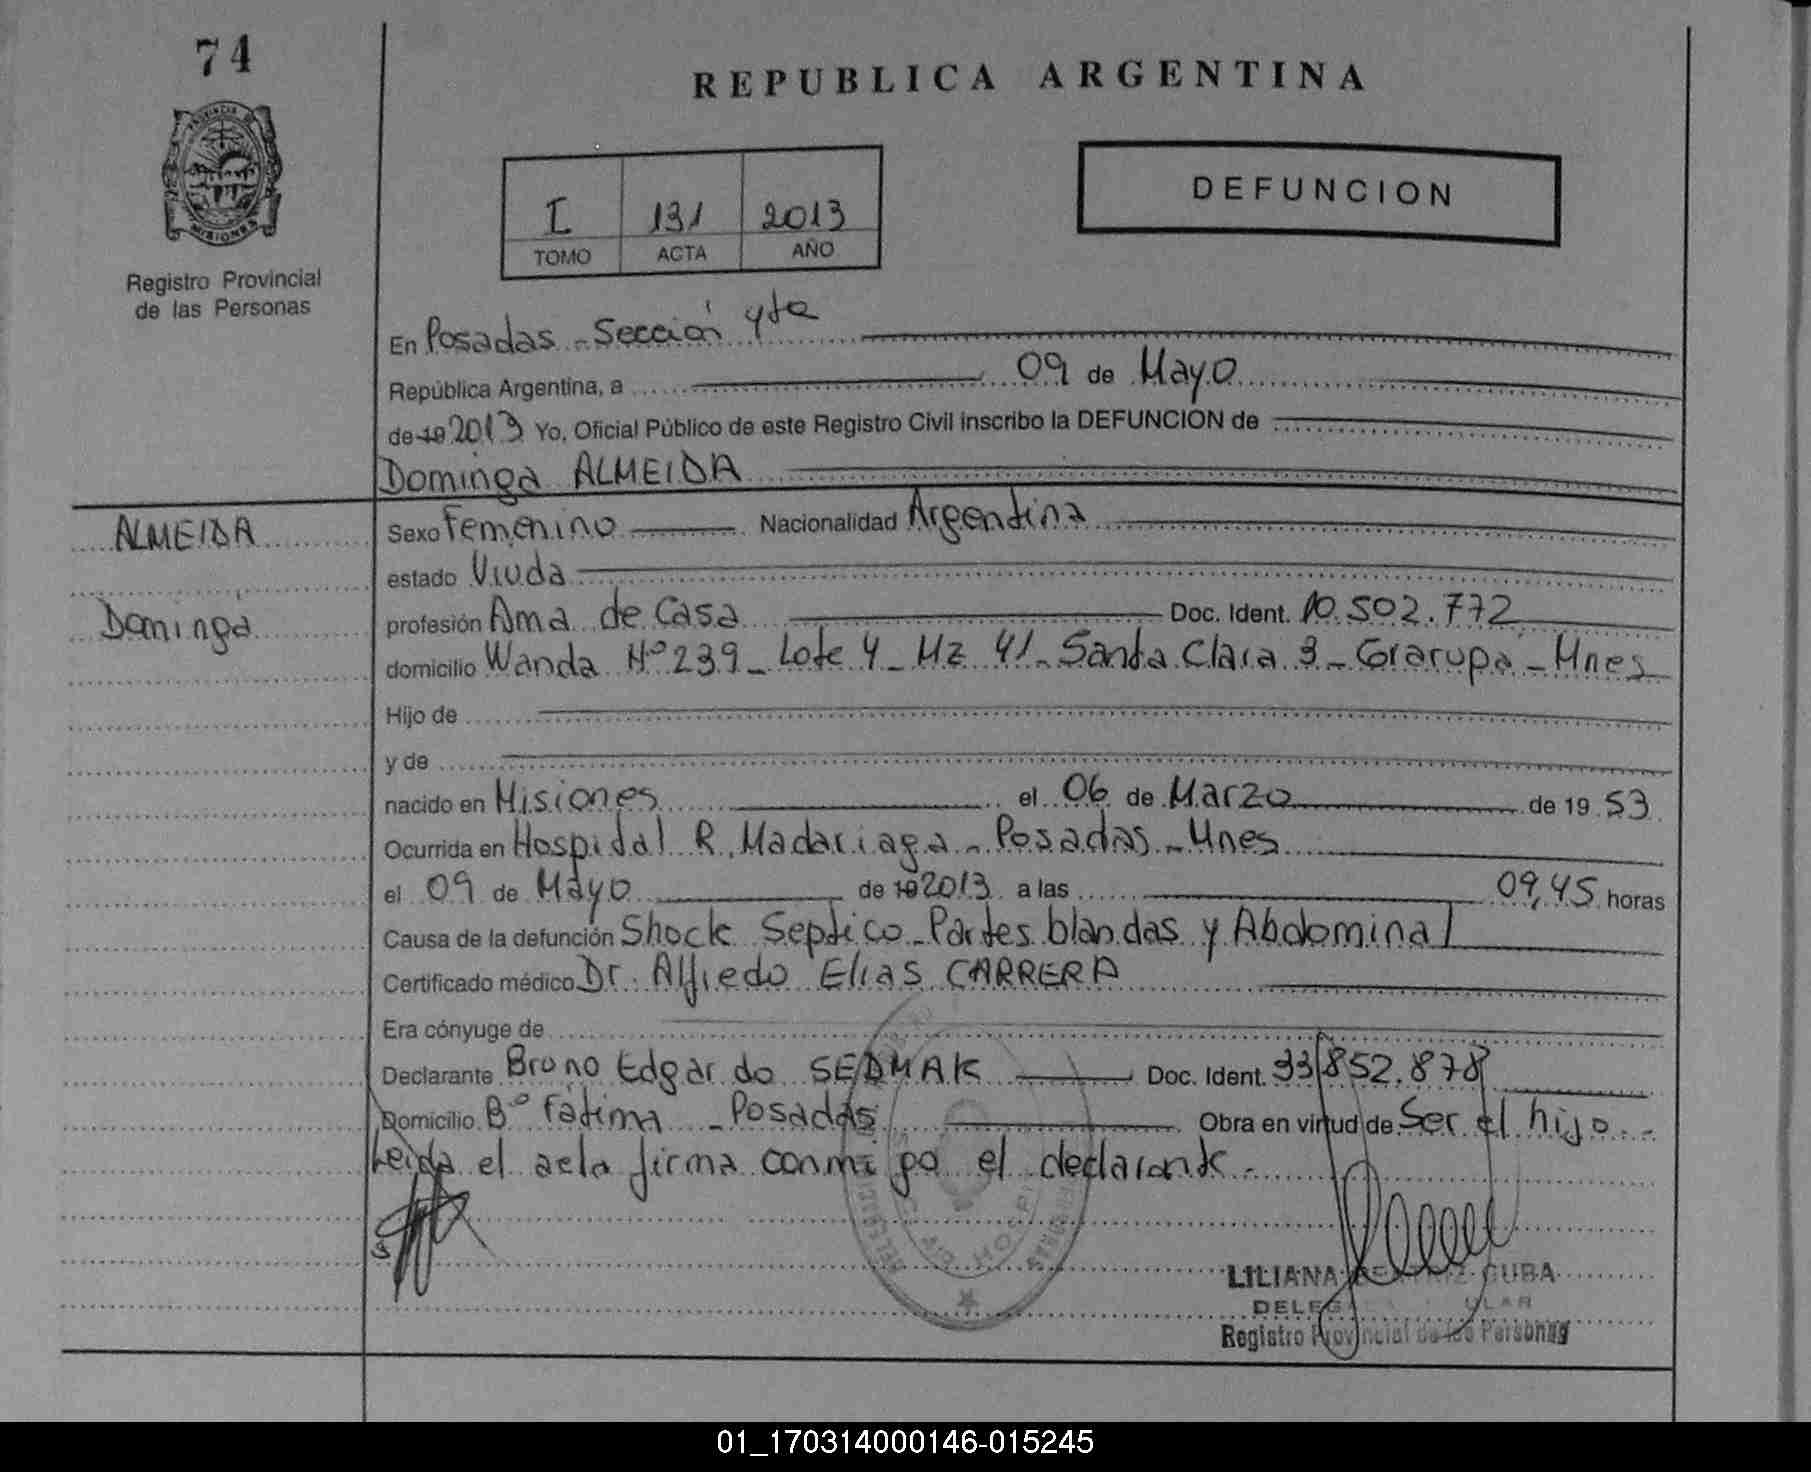 74
REPUBLICA ARGENTINA
PROVINCIA DE
MISIONES
Registro Provincial
de las Personas
I 131 2013
TOMO ACTA AÑO
DEFUNCION
En Posadas - Sección 4ta
República Argentina, a 09 de Mayo
de 19 2013 Yo, Oficial Público de este Registro Civil inscribo la DEFUNCION de
Dominga ALMEIDA
ALMEIDA
Dominga
Sexo Femenino Nacionalidad Argentina
estado Viuda
profesión Ama de Casa Doc. Ident. 10.502.772
domicilio Wanda Nº 239 - Lote 4 - Mz 41 - Santa Clara 3 - Garupa - Mnes
Hijo de
y de
nacido en Misiones el 06 de Marzo de 19 53
Ocurrida en Hospital R. Madariaga - Posadas - Mnes
el 09 de Mayo de 19 2013 a las 09,45 horas
Causa de la defunción Shock Septico - Partes blandas y Abdominal
Certificado médico Dr. Alfredo Elias CARRERA
Era cónyuge de
Declarante Bruno Edgardo SEDMAK Doc. Ident. 33.852.878
Domicilio Bº Fatima - Posadas Obra en virtud de Ser el hijo -
Leida el acta firma conmigo el declarante -
LILIANA BEATRIZ CUBA
Registro Provincial de las Personas
01_170314000146-015245